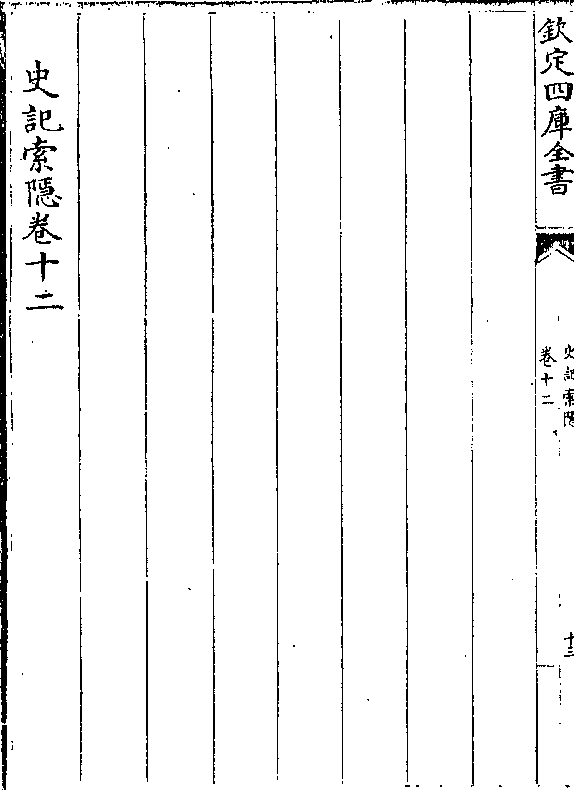 欽定四庫全書
史記索隱
卷十二
十三
史記索隱卷十二